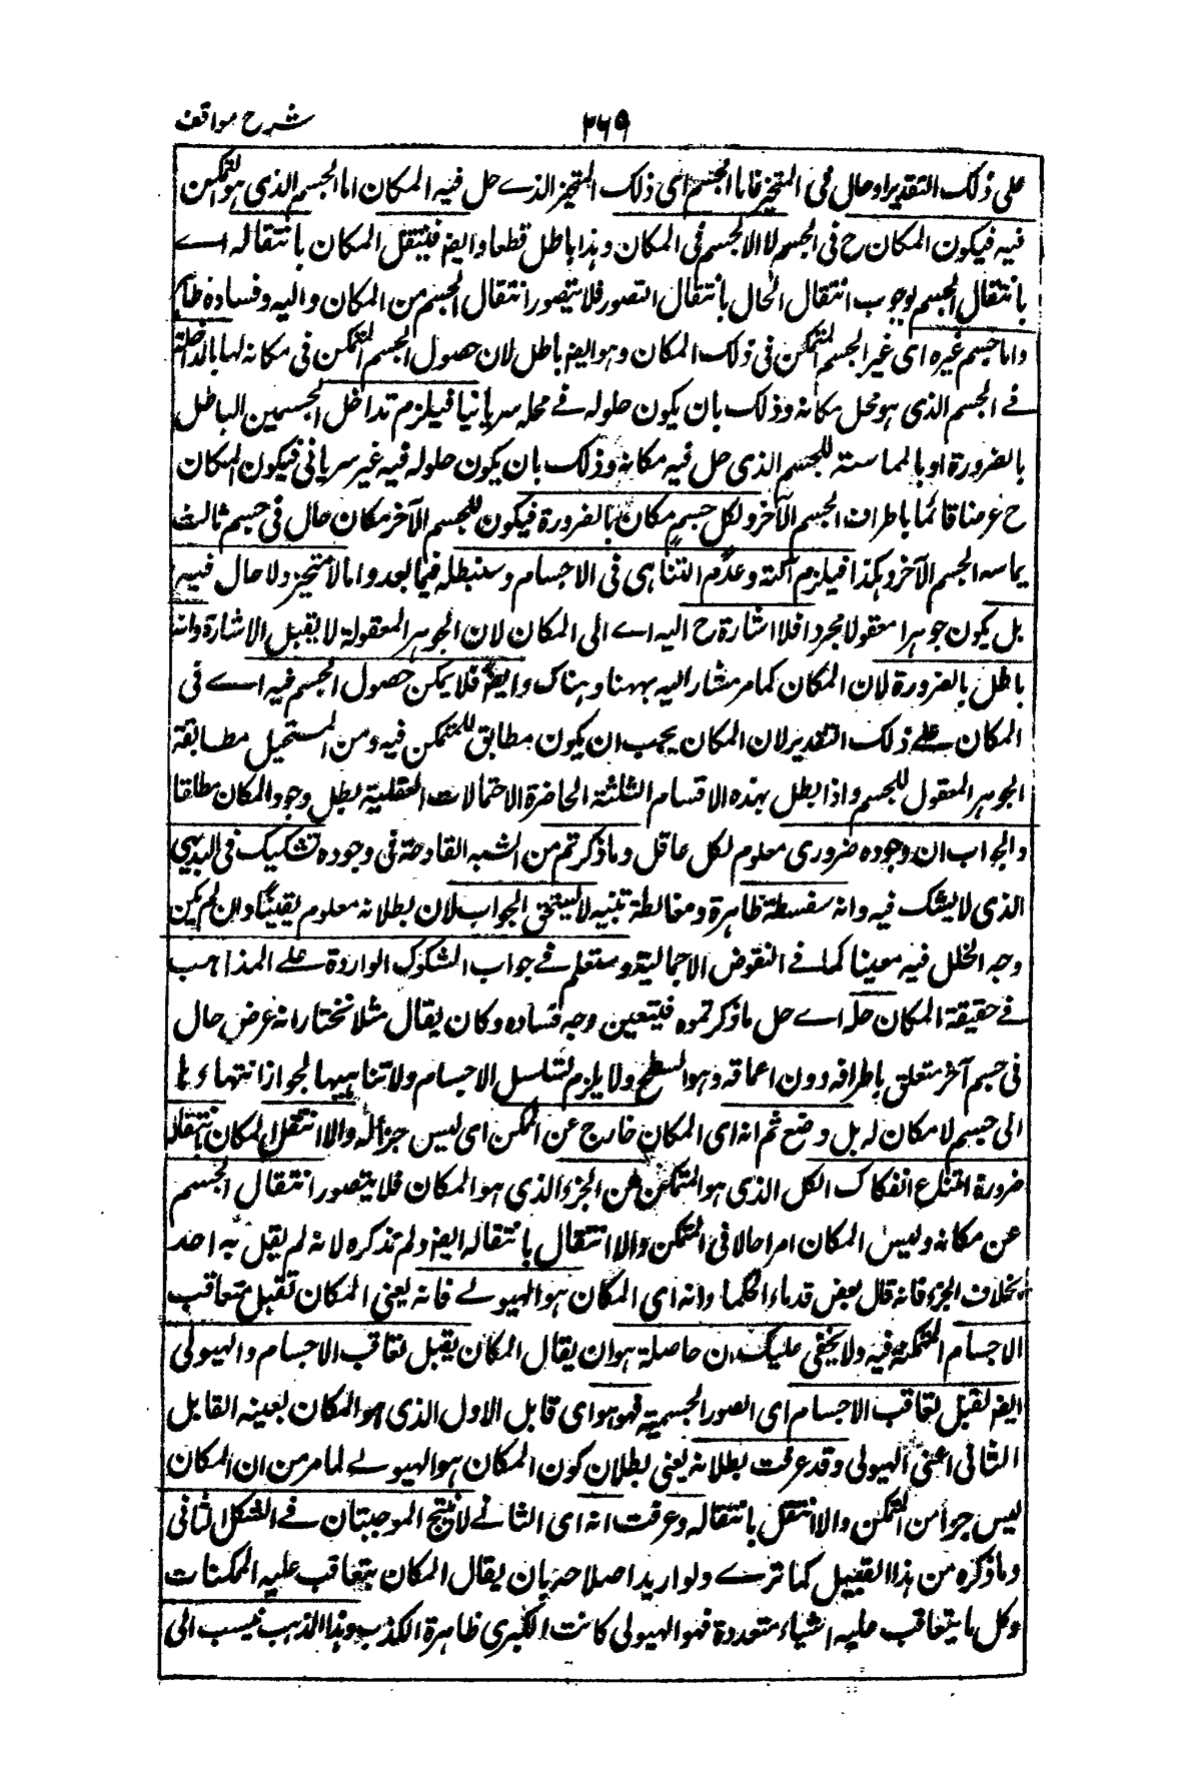 شرح مواقف
٢٦٩
على ذلك التقدير او حال فى المتحيز فاما الجسم اى ذلك المتحيز الذے حل فيه المكان اما الجسم الذى هو المتمكن
فيه فيكون المكان ح فى الجسم لا الجسم فى المكان وهذا باطل قطعا وايضا فينتقل المكان بانتقاله اے
بانتقال الجسم لوجوب انتقال الحال بانتقال فلا يتصور انتقال الجسم من المكان واليه وفساده ظاهر
واما جسم غيره اى غير الجسم المتمكن فى ذلك المكان وهو ايضا باطل لان حصول الجسم المتمكن فى مكانه اما بالمداخلة
فے الجسم الذى هو محل مكانه وذلك بان يكون حلوله فے محله سريانيا فيلزم تداخل الجسمين الباطل
بالضرورة او بالمماسة للجسم الذى حل فيه مكانه وذلك بان يكون حلوله فيه غير سريانى فيكون المكان
ح عرضا قائما باطراف الجسم الآخر ولكل جسم مكان بالضرورة فيكون للجسم الآخر مكان حال فى جسم ثالث
يماسه الجسم الآخر وهكذا فيلزم وعدم التناهى فى الاجسام وسنبطله فيما بعد واما لا متحيز ولا حال فيه
بل يكون جوهرا معقولا مجردا فلا اشارة ح اليه اے الى المكان لان الجوهر المعقولة لا يقبل الاشارة وانه
باطل بالضرورة لان المكان كما مر مشار اليه بههنا وهناك وايضا فلا يمكن حصول الجسم فيه اے فى
المكان علے ذلك التقدير لان المكان يجب ان يكون مطابق للمتمكن فيه ومن المستحيل مطابقة
الجوهر المعقول للجسم واذا بطل بهذه الاقسام الثلثة الحاضرة الاحتمالات العقلية بطل وجود المكان مطلقا
والجواب ان وجوده ضرورى معلوم لكل عاقل وما ذكرتم من الشبه القادحة فى وجوده تشكيك فى البديهى
الذى لا يشك فيه وانه سفسطة ظاهرة ومغالطة لا يستحق الجواب لان بطلانه معلوم يقينا وان لم يكن
وجه الخلل فيه معينا كما فے النقوض الاجمالية وستعلم فے جواب الشكوك الواردة علے المذاهب
فے حقيقة المكان حله اے حل ما ذكرتموه فيتعين وجه فساده وكان يقال مثلا نختار انه عرض حال
فى جسم آخر متعلق باطرافه دون اعماقه وهو السطح ولا يلزم تسلسل الاجسام ولا تناهيها لجواز انتهاءها
الى جسم لا مكان له بل وضع ثم انه اى المكان خارج عن المتمكن اى ليس جزأ له والا انتقل المكان بانتقاله
ضرورة امتناع انفكاك الكل الذى هو المتمكن عن الجزء الذى هو المكان فلا يتصور انتقال الجسم
عن مكانه وليس المكان امرا حالا فى المتمكن والا انتقال بانتقاله ايضا ولم تذكره لانه لم يقل به احد
بخلاف الجزء فانه قال بعض قدماء الحكما وانه اى المكان هو الهيولے فانه يعنى المكان تقبل تعاقب
الاجسام المتمكنة فيه ولا يخفى عليك ان حاصله هو ان يقال المكان يقبل تعاقب الاجسام والهيولى
ايضا تقبل تعاقب الاجسام اى الصور الجسمية فهو هو اى قابل الاول الذى هو المكان بعينه القابل
الثانى اعنى الهيولى وقد عرفت بطلانه يعنى بطلان كون المكان هو الهيولے لما مر من ان المكان
ليس جزأ من المتمكن والا انتقل بانتقاله وعرفت انه اى الثانے لا ينتج الموجبتان فے الشكل الثانى
وما ذكره من هذا القبيل كما ترے ولو اريد اصلاحه بان يقال المكان يتعاقب عليه الممكنات
وكل ما يتعاقب عليه اشياء متعددة فهو الهيولى كانت الكبرى ظاهرة الكذب وهذا المذهب ينسب الى